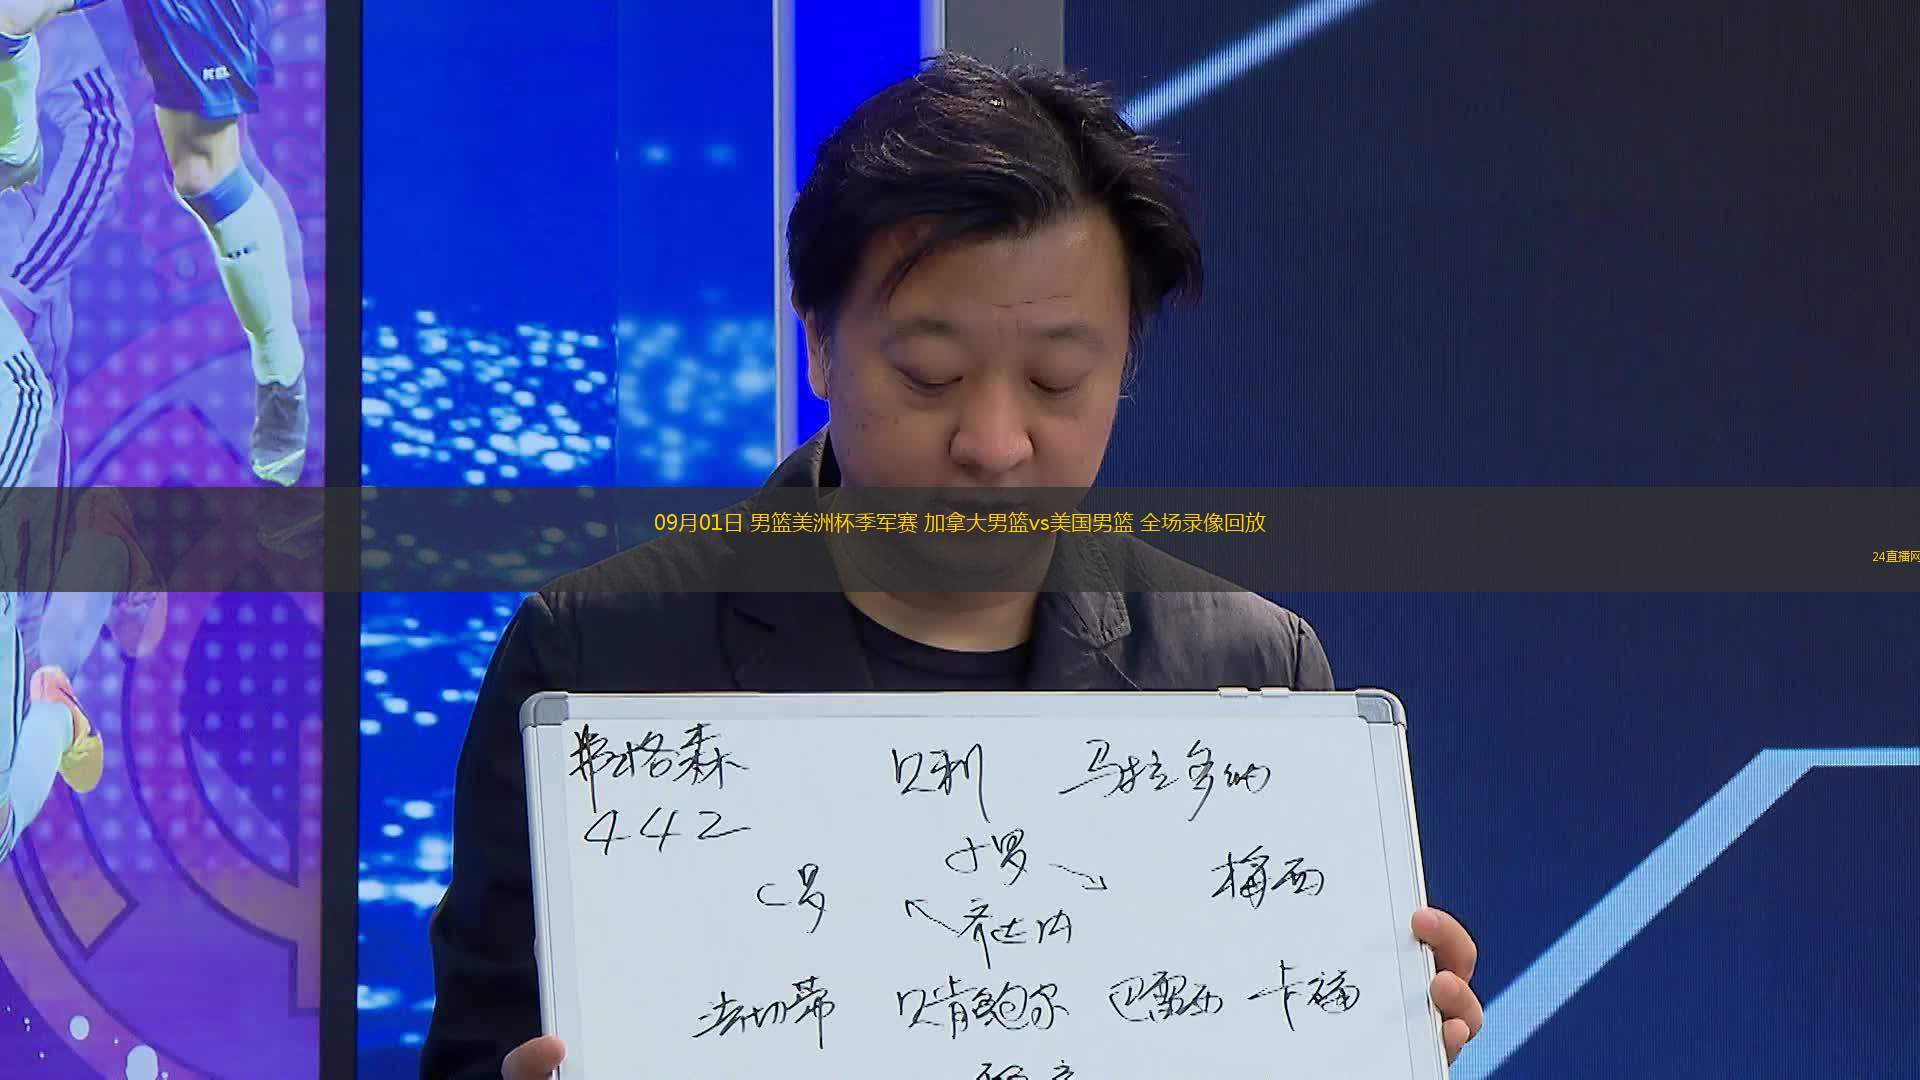 09月01日 男篮美洲杯季军赛 加拿大男篮vs美国男篮 全场录像回放
24直播网
弗格森 贝利 马拉多纳
442
小罗
C罗 梅西
齐达内
法切蒂 贝肯鲍尔 巴雷西 卡福